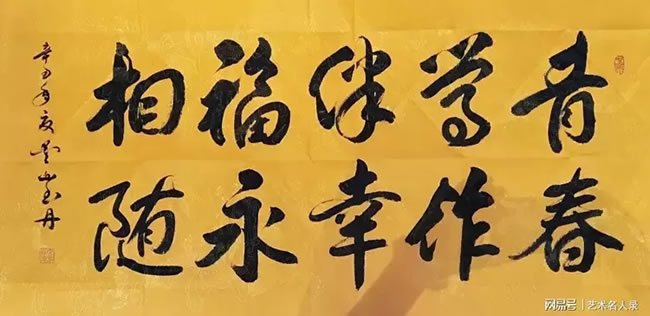 青春
常作
伴幸
福永
相随
辛丑年夏
网易号 | 艺术名人录